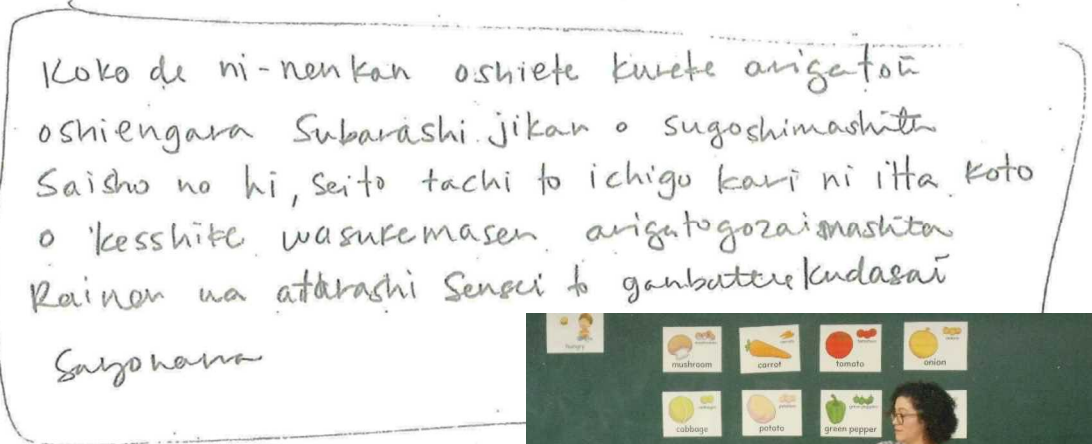 Koko de ni-nen kan oshiete kurete arigatoū
oshiengara Subarashi jikan o sugoshimashita
Saisho no hi, seito tachi to ichigo kari ni itta koto
o kesshite wasuremasen arigatogozaimashita
Rainen wa atarashi Sensei to ganbatte kudasai
Sayonara
hungry
mushroom
carrot
tomato
onion
cabbage
potato
green pepper